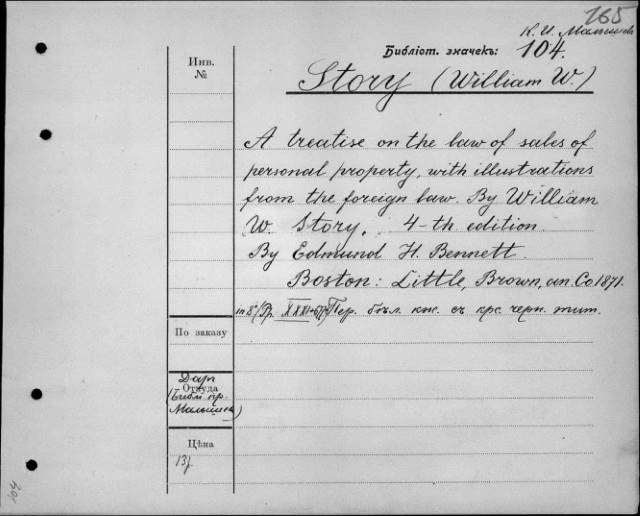 165
К. И. Малышев
Библіот. значекъ: 104.
Инв.
№
Story (William W.)
A treatise on the law of sales of
personal property, with illustrations
from the foreign law. By William
W. Story. 4-th edition.
By Edmund H. Bennett.
Boston: Little, Brown, an. Co 1871.
in 8° Пер. бѣл. кож. съ крс. черн. тит.
По заказу
Даръ
Откуда
(Библ. пр.
Малышева)
Цѣна
13
104